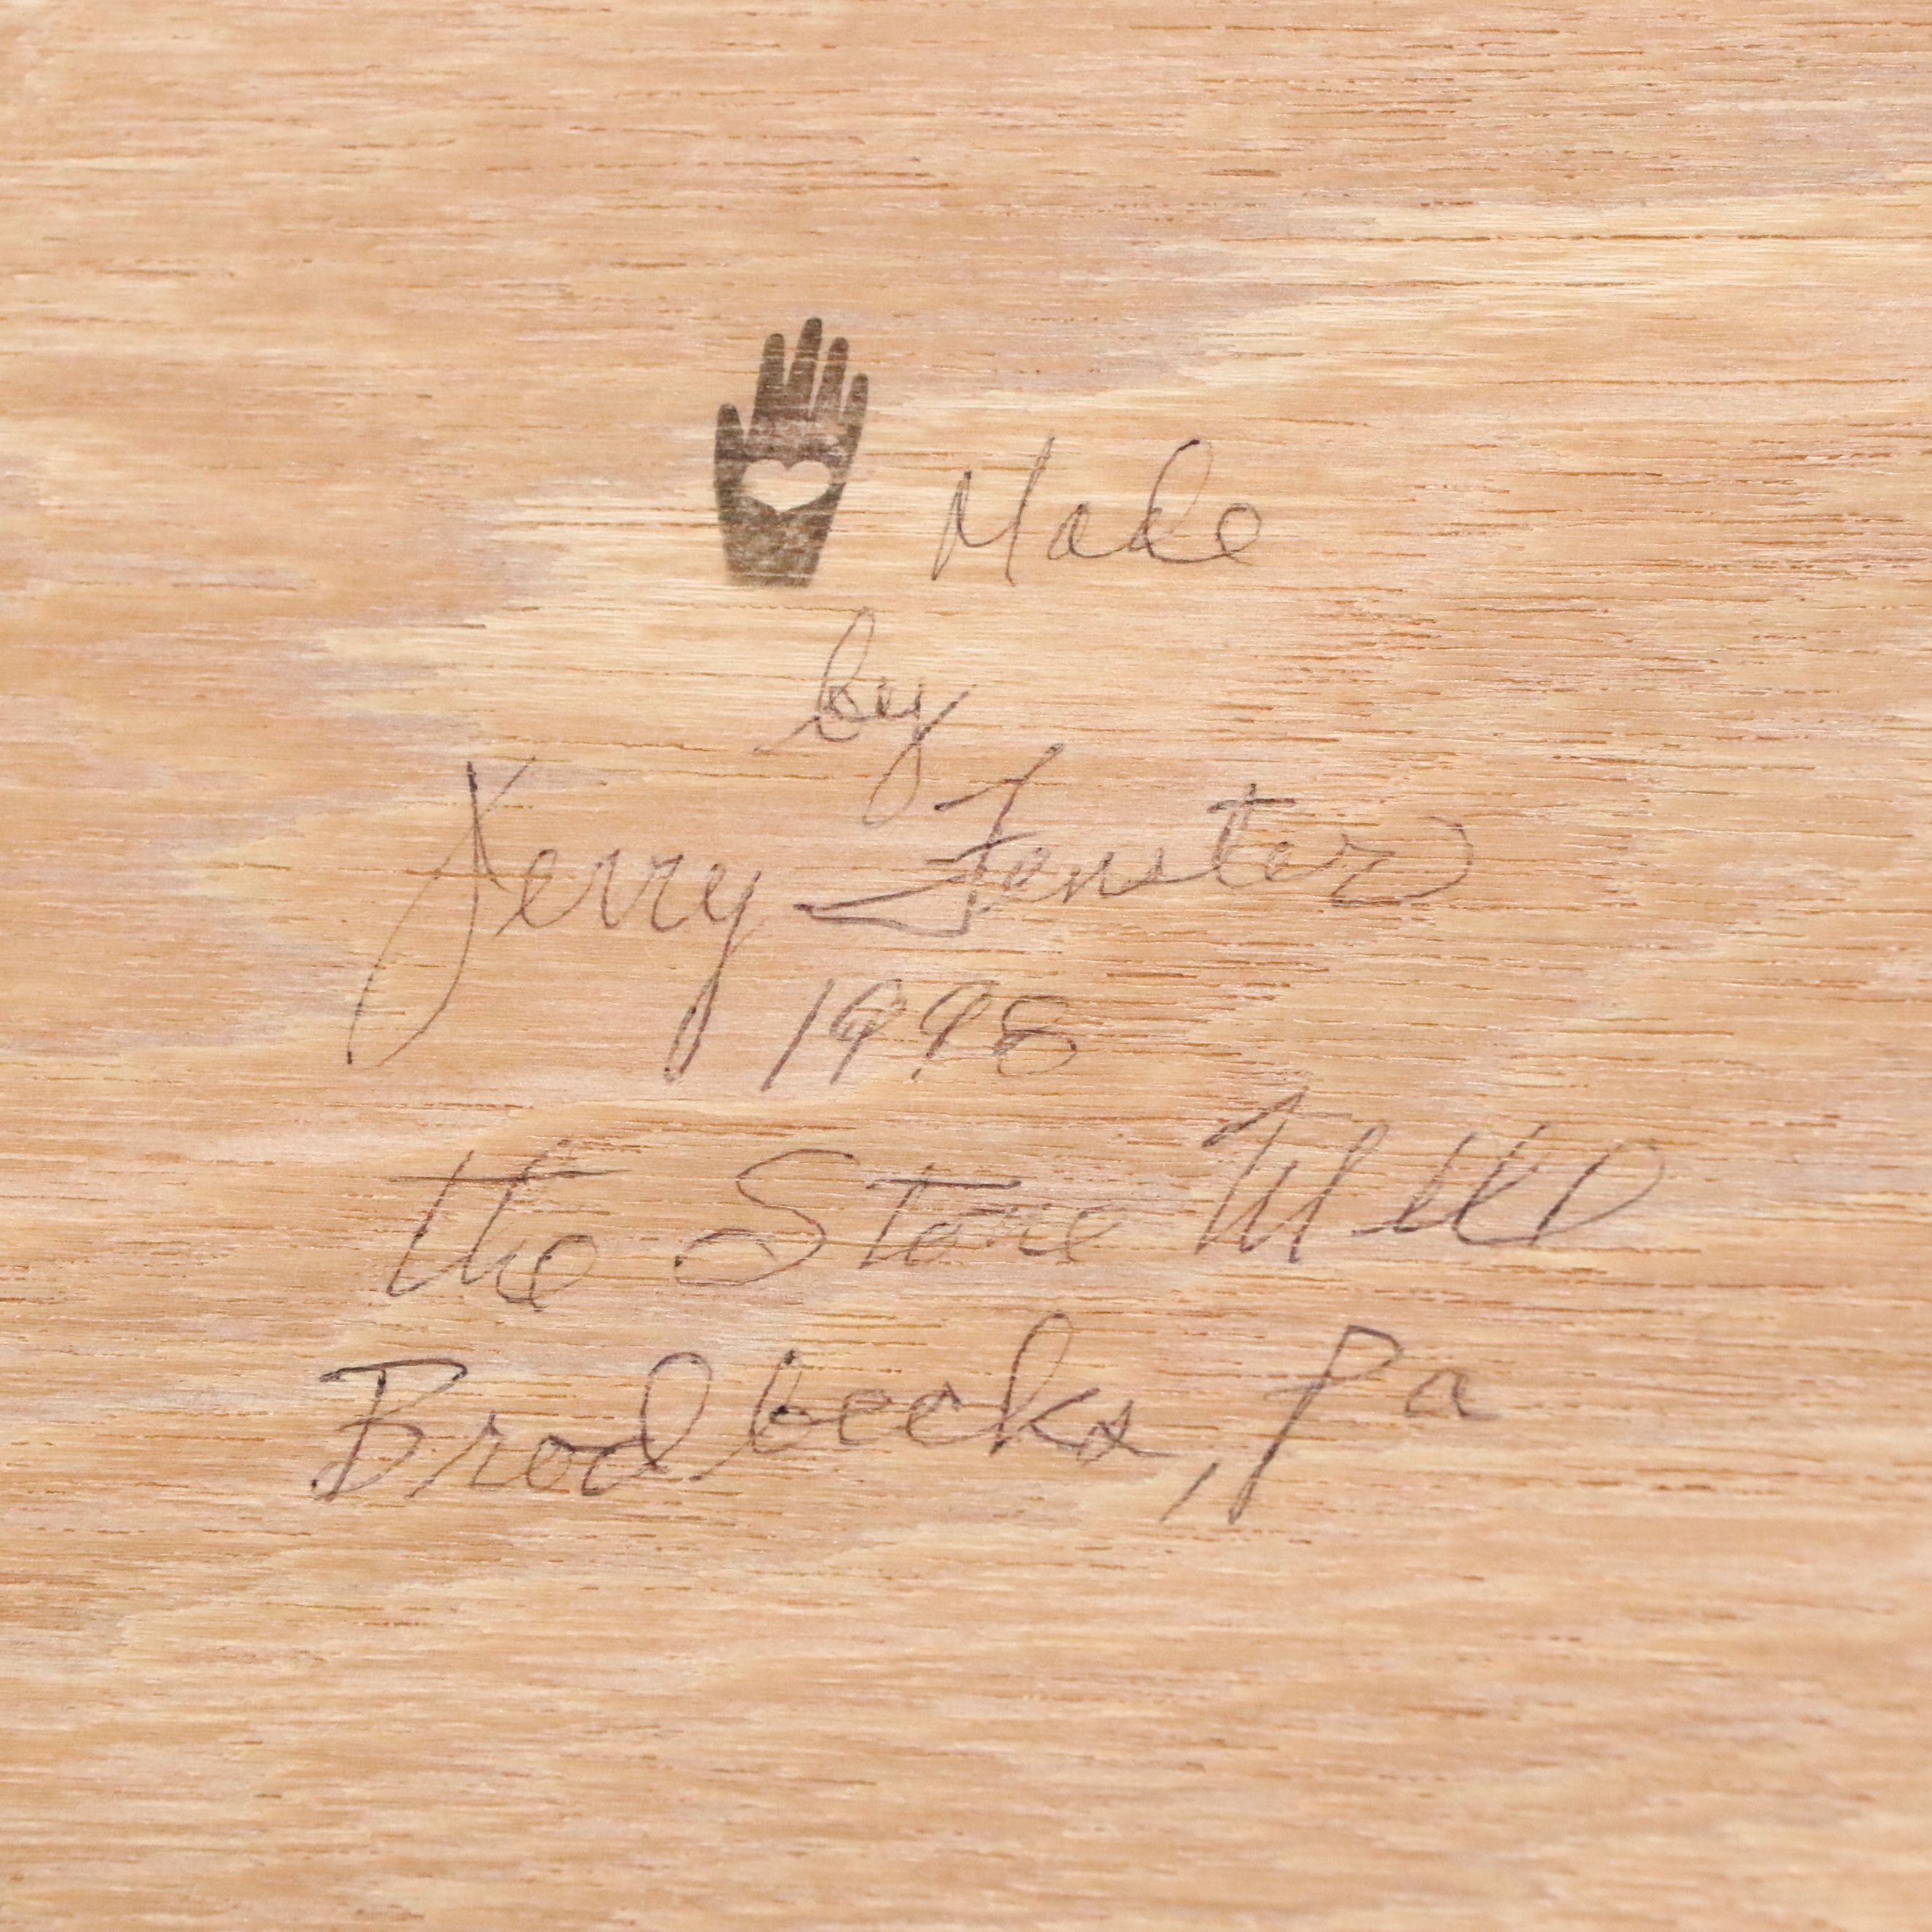 Made
by
Jerry Fenster
1998
the Stone Mill
Brodbecks, Pa